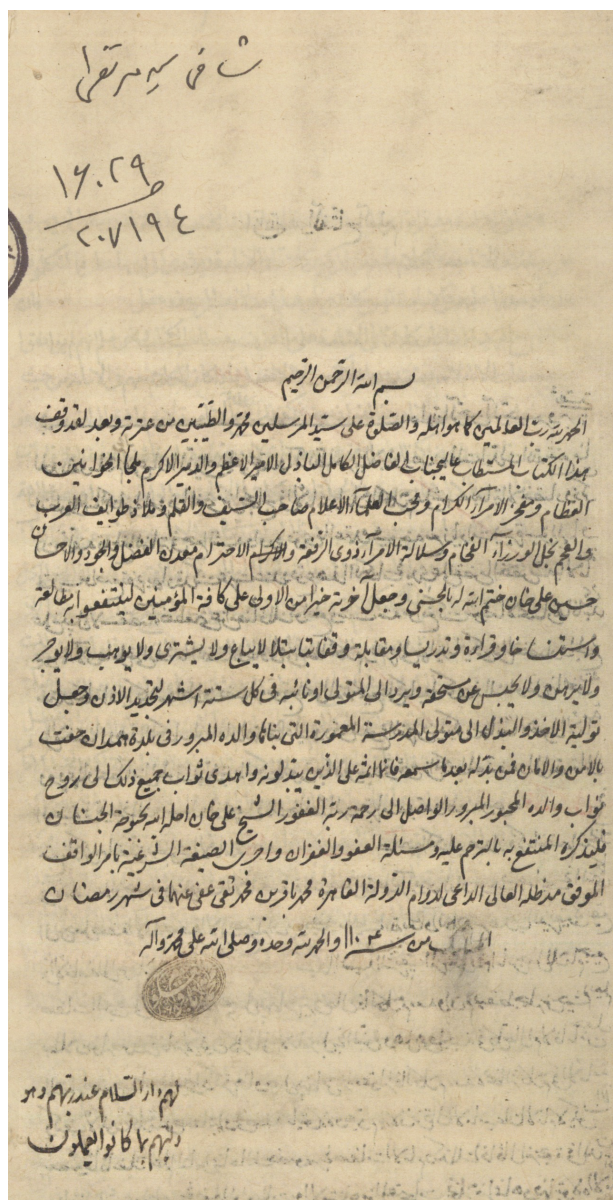 شافی سید مرتضی
۱۶۰۲۹
۲۰۷۱۹٤
بسم الله الرحمن الرحیم
الحمد لله رب العالمین کما هو اهله والصلوة علی سید المرسلین محمد والطیبین من عترته وبعد لقد وقف
هذا الکتاب المستطاب عالیجناب الفاضل الکامل الباذل الامیر الاعظم والدستور الاکرم ملجأ الخوانین
العظام ومفخر الامرآء الکرام ومحب العلمآء الاعلام صاحب السیف والقلم وملاذ طوایف العرب
والعجم نجل الوزرآء الفخام وسلالة الامرآء ذوی الرفعة والاکرام والاحترام معدن الفضل والجود والاحسان
حسین علی خان ختم الله له بالحسنی وجعل آخرته خیرا من الاولی علی کافة المؤمنین لینتفعوا به مطالعة
واستنساخا وقراءة وتدریسا ومقابلة وقفا بتا بتلا لا یباع ولا یشتری ولا یوهب ولا یوجر
ولا یرهن ولا یحبس عن مستحقه ویرد الی المتولی او نائبه فی کل ستة اشهر لتجدید الاذن وجعل
تولیة الاخذ والبذل الی متولی المدرسة المعمورة التی بناها والده المبرور فی بلدة همدان حفت
بالامن والامان فمن بدله بعد ما سمعه فانما اثمه علی الذین یبدلونه واهدی ثواب جمیع ذلک الی روح
نواب والده المحبور المبرور الواصل الی رحمة ربه الغفور الشیخ علی خان احله الله بحبوحة الجنان
فلیذکره المنتفع به بالترحم علیه ومسئلة العفو والغفران واجری الصیغة الشرعیة بامر الواقف
الموفق مد ظله العالی الداعی لدوام الدولة القاهرة محمد باقر بن محمد تقی عفی عنهما فی شهر رمضان
المبارک من سنة ۱۱۰۴ والحمد لله وحده وصلی الله علی محمد وآله
لهم دار السلام عند ربهم وهو
ولیهم بما کانوا یعملون